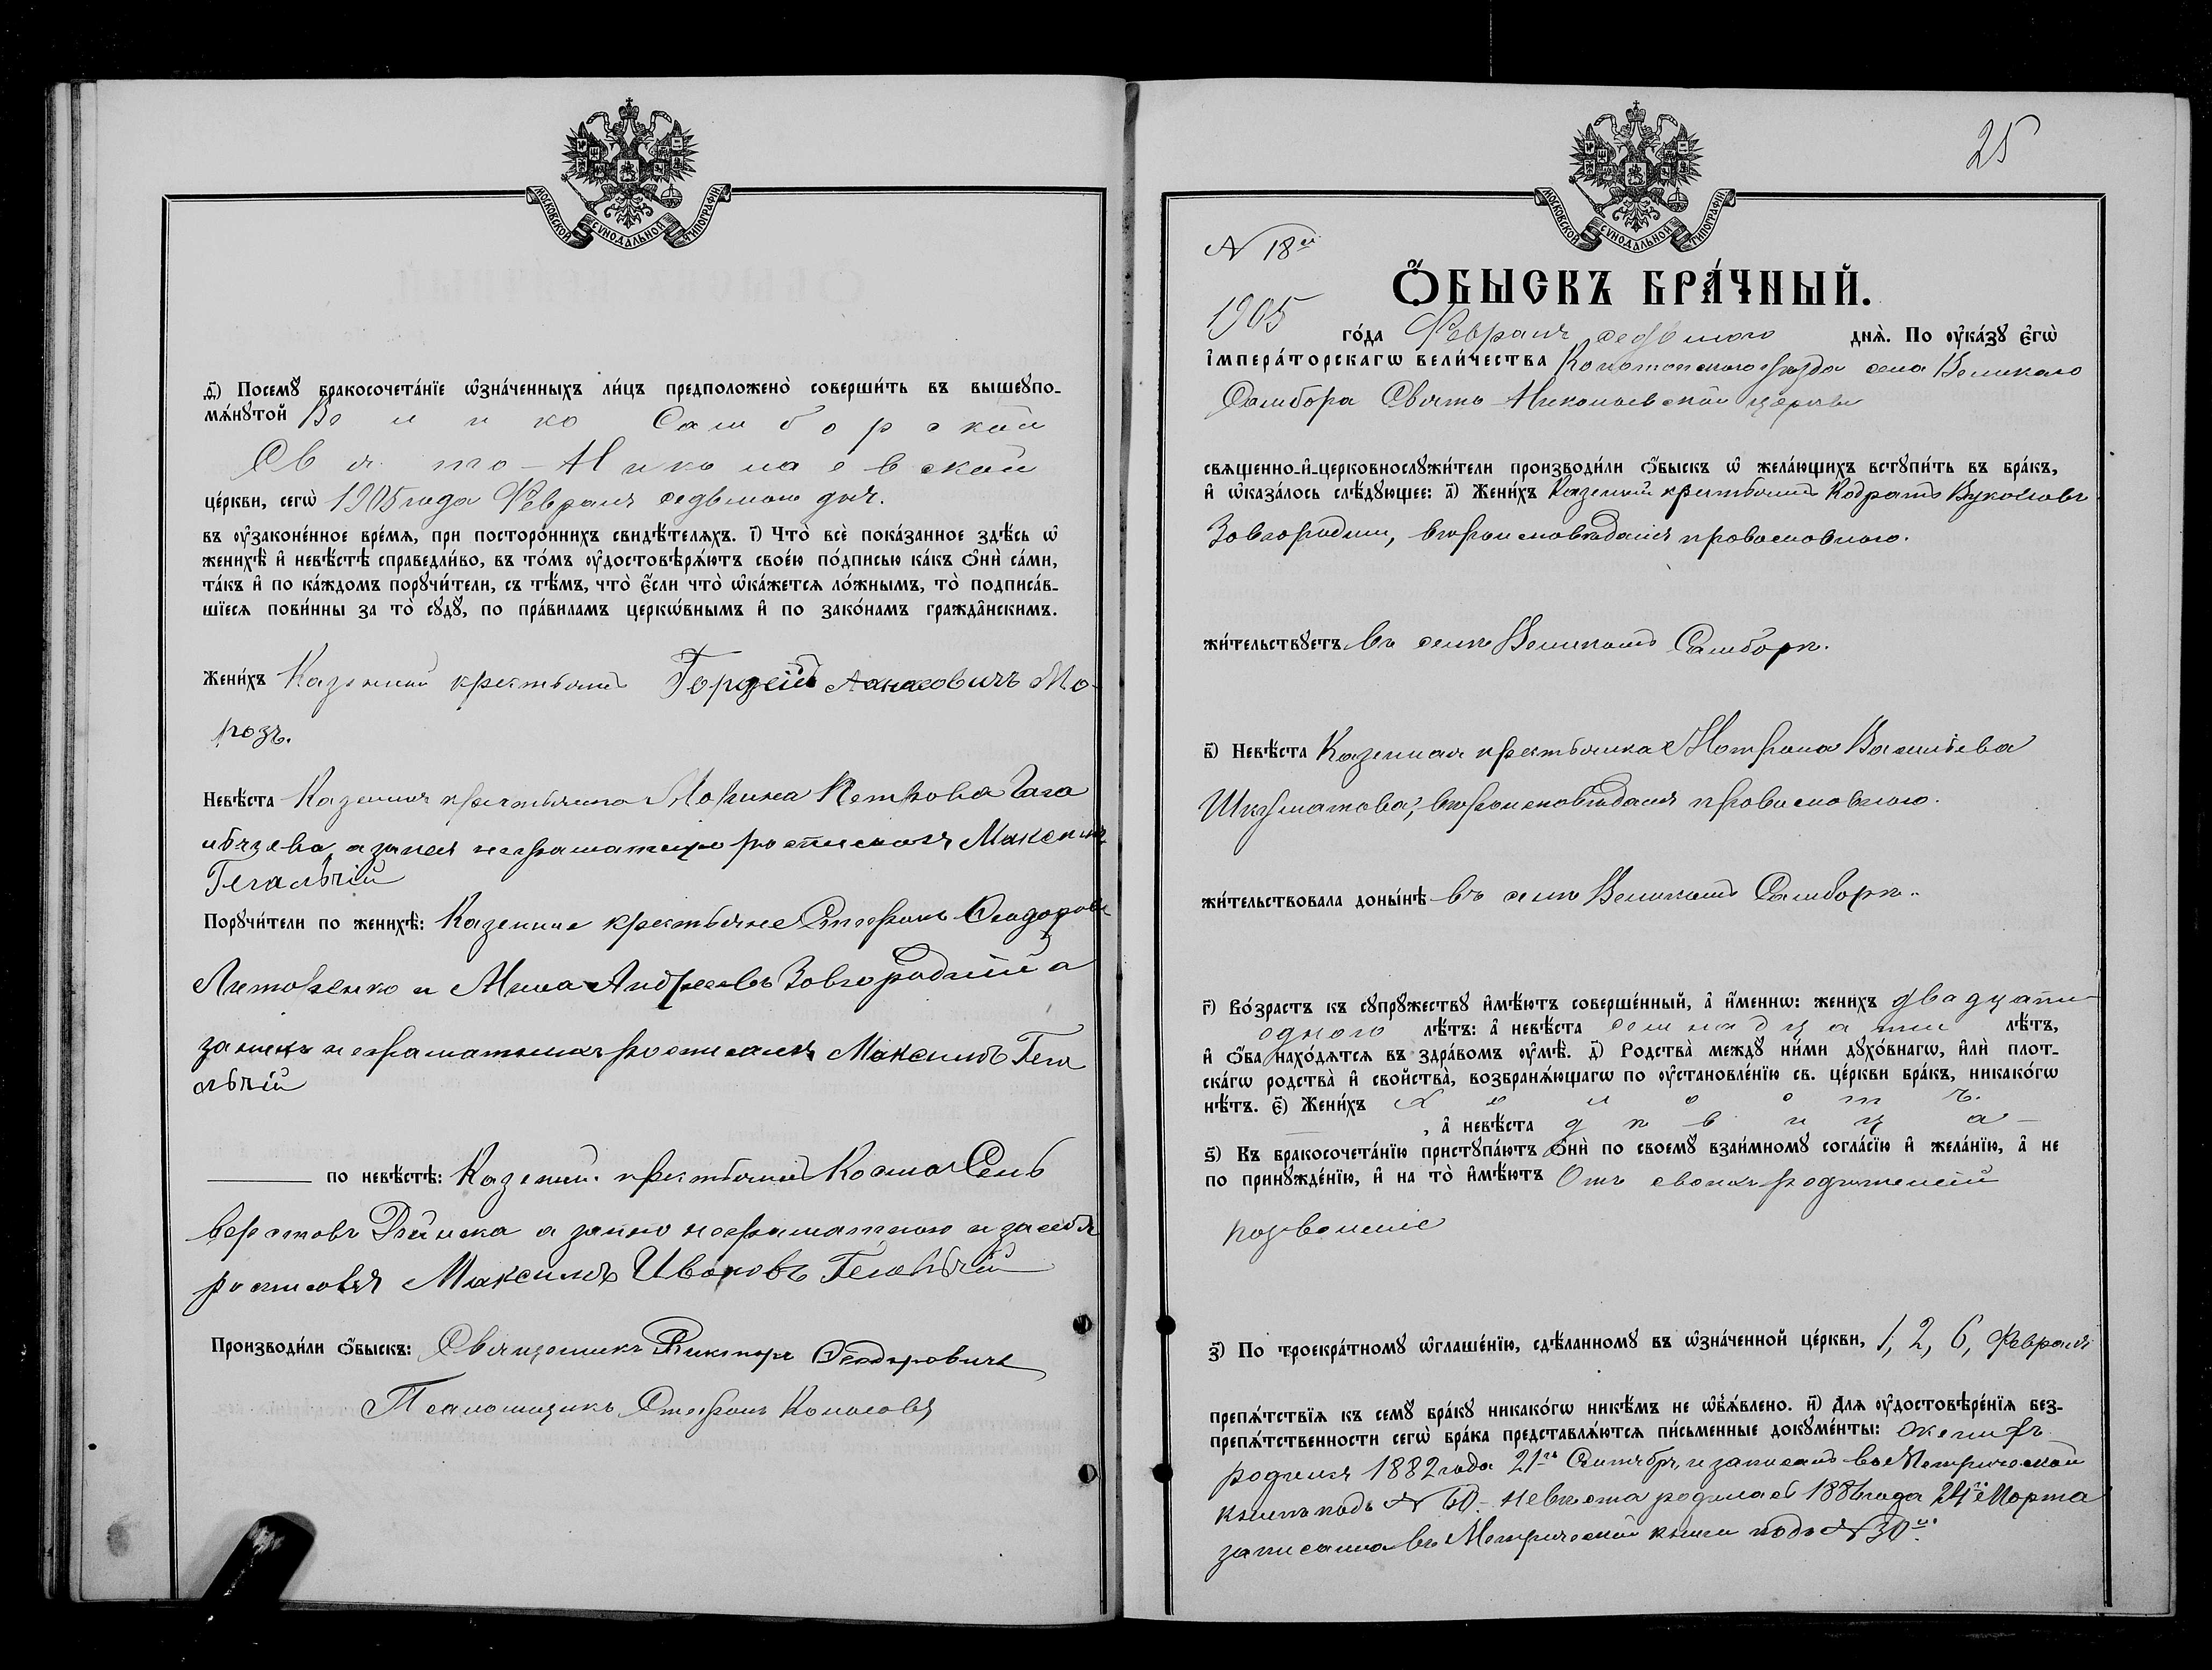 МОСКОВСКОЙ СѴНОДАЛЬНОЙ ТИПОГРАФІИ
д҃і) Посемꙋ̀ бракосочета́нїе ѡ҆зна́ченныхъ ли́цъ предположено̀ соверши́ть въ вышеꙋпо-
мѧ́нꙋтой Велико Самборской
Свято-Николаевской
це́ркви, сегѡ̀ 1905 года Февраля седьмого дня.
въ ᲂу҆законе́нное вре́мѧ, при посторо́ннихъ свидѣ́телѧхъ. і҃) Что̀ всѐ пока́занное здѣ́сь ѡ҆
женихѣ̀ и҆ невѣ́стѣ справедли́во, въ то́мъ ᲂу҆достовѣрѧ́ютъ свое́ю по́дписью ка́къ ѻ҆нѝ са́ми,
та́къ и҆ по ка́ждомъ порꙋчи́тели, съ тѣ́мъ, что̀ є҆́сли что̀ ѡ҆ка́жетсѧ ло́жнымъ, то̀ подписа́в-
шїесѧ пови́нны за то̀ сꙋдꙋ̀, по пра́виламъ церкѡ́внымъ и҆ по зако́намъ гражда̑нскимъ.
Жени́хъ Казенный крестьянинъ Гордѣй Афанасовичъ Мо-
розъ.
Невѣ́ста Казенная крестьянка Марина Петрова
а за нея неграматную росписался Максимъ
Гегальчій
Порꙋчи́тели по женихѣ̀: Казенные крестьяне Стефанъ Феодоровъ
Литовченко и Мина Андреевъ Завгородній а
за нихъ неграматныхъ росписался Максимъ Гега
льчій
по невѣ́стѣ: Казенный крестьянинъ Косма Сель
верстовъ Дейнека а за него неграматного и за себя
росписовся Максимъ Ивановъ Гегальчій
Производи́ли ѻ҆́быскъ: Священникъ Викторъ Феодоровичъ
Псаломщикъ Стефанъ
25
МОСКОВСКОЙ СѴНОДАЛЬНОЙ ТИПОГРАФІИ
№ 18й
Ѻ҆́БЫСКЪ БРА́ЧНЫЙ.
1905 го́да Февраля седьмого днѧ̀. По ᲂу҆ка́зꙋ є҆гѡ̀
і҆мпера́торскагѡ вели́чества Конотопского уезда села Великаго
Самбора Свято-Николаевской церкви
свѧщенно-и҆-церковнослꙋжи́тели производи́ли ѻ҆́быскъ ѡ҆ жела́ющихъ встꙋпи́ть въ бра́къ,
и҆ ѡ҆каза́лось слѣ́дꙋющее: а҃) Жени́хъ Казенный крестьянинъ Кодратъ Вуколовъ
Завгородній, вѣроисповѣданія православного.
жи́тельствꙋетъ въ селѣ Великомъ Самборѣ.
в҃) Невѣ́ста Казенная крестьянка Мотрона Васильева
Шкурматова, вѣроисповѣданія православного.
жи́тельствовала доны́нѣ въ селѣ Великомъ Самборѣ.
г҃) Во́зрастъ къ сꙋпрꙋ́жествꙋ и҆мѣ́ютъ соверше́нный, а҆ и҆́меннѡ: женихъ двадцати
одного лѣ́тъ: а҆ невѣ́ста семнадцати лѣ́тъ,
и҆ ѻ҆́ба нахо́дѧтсѧ въ здра́вомъ ᲂу҆мѣ̀. д҃) Родства̀ междꙋ̀ ни́ми дꙋхо́внагѡ, и҆лѝ плот-
ска́гѡ родства̀ и҆ сво́йства̀, возбранѧ́ющагѡ по ᲂу҆становле́нїю св. це́ркви бра́къ, никако́гѡ
нѣ́тъ. є҃) Жени́хъ холостъ.
, а҆ невѣ́ста дѣвица
ѕ҃) Къ бракосочета́нїю пристꙋпа́ютъ ѻ҆нѝ по своемꙋ̀ взаи́мномꙋ согла́сїю и҆ жела́нїю, а҆ не
по принꙋжде́нїю, и҆ на то̀ и҆мѣ́ютъ Отъ своихъ родителей
позволеніе
з҃) По троекра́тномꙋ ѡ҆глаше́нїю, сдѣ́ланномꙋ въ ѡ҆зна́ченной це́ркви, 1, 2, 6, Февраля
препѧ́тствїѧ къ семꙋ̀ бра́кꙋ никако́гѡ никѣ́мъ не ѡ҆б̾ѧ́влено. и҃) Для ᲂу҆достовѣре́нїѧ без-
препѧ́тственности сегѡ̀ бра́ка представлѧ́ютсѧ пи́сьменные докꙋме́нты: женихъ
родился 1882 года 21го Сентября, и записанъ въ Метрической
книгѣ подъ № 60.- невѣста родилась 1886 года 24го Марта
записана въ Метрической книги подъ № 30й.